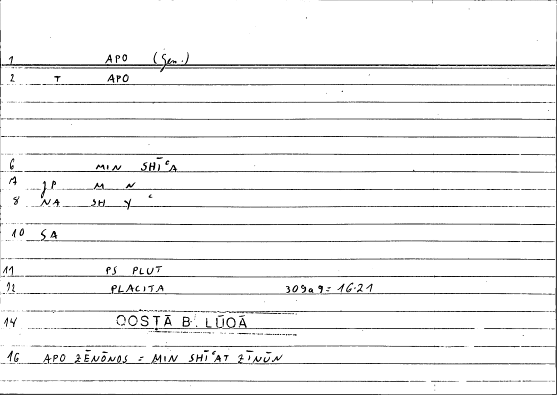 1 APO (Gen.)
2 T APO
6 MIN SHĪʿA
A JP M N
8 NA SH Y ʿ
10 SA
11 PS PLUT
12 PLACITA 309a9 = 16.21
14 QOSṬĀ B. LŪQĀ
16 APO ZĒNŌNOS = MIN SHĪʿAT ZĪNŪN